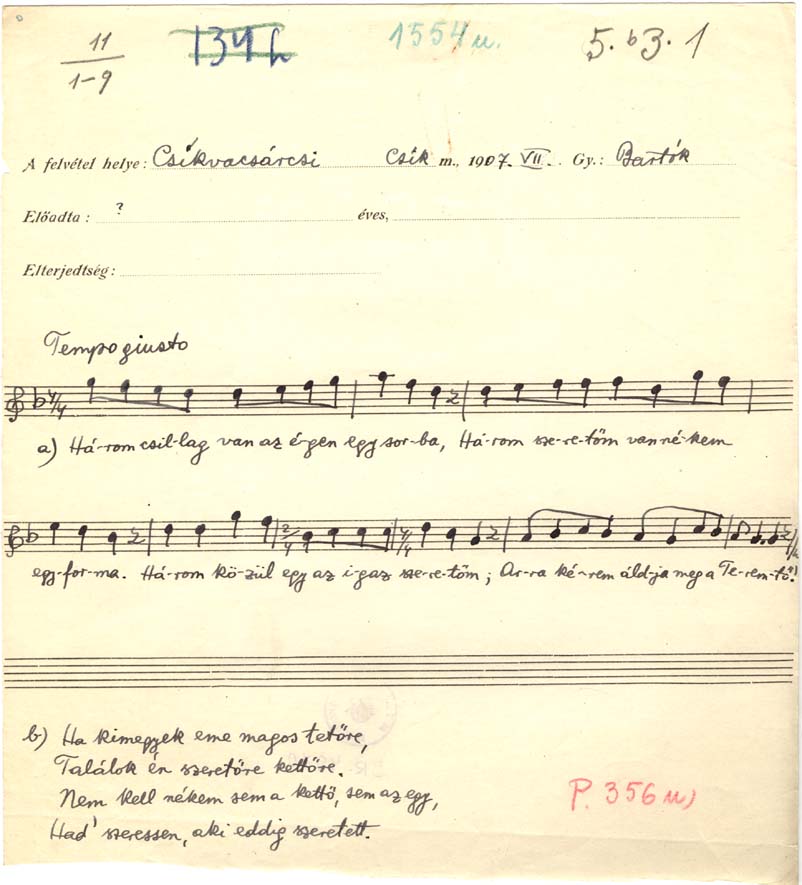 11 134 h 1554 u. 5. b3. 1
1-9
A felvétel helye: Csíkvacsárcsi Csík m., 1907. VII. Gy.: Bartók
Előadta: ? éves,
Elterjedtség:
Tempo giusto
4/4
a) Há-rom csil-lag van az é-gen egy sor-ba, Há-rom sze-re-töm van né-kem
2/4 4/4
egy-for-ma. Há-rom kö-zül egy az i-gaz sze-re-töm; Ar-ra ké-rem áld-ja meg a Te-rem-tő!
b) Ha kimegyek eme magos tetőre,
Találok én szeretőre kettőre.
Nem kell nékem sem a kettő, sem az egy,
Had' szeressen, aki eddig szeretett.
P. 356 u)